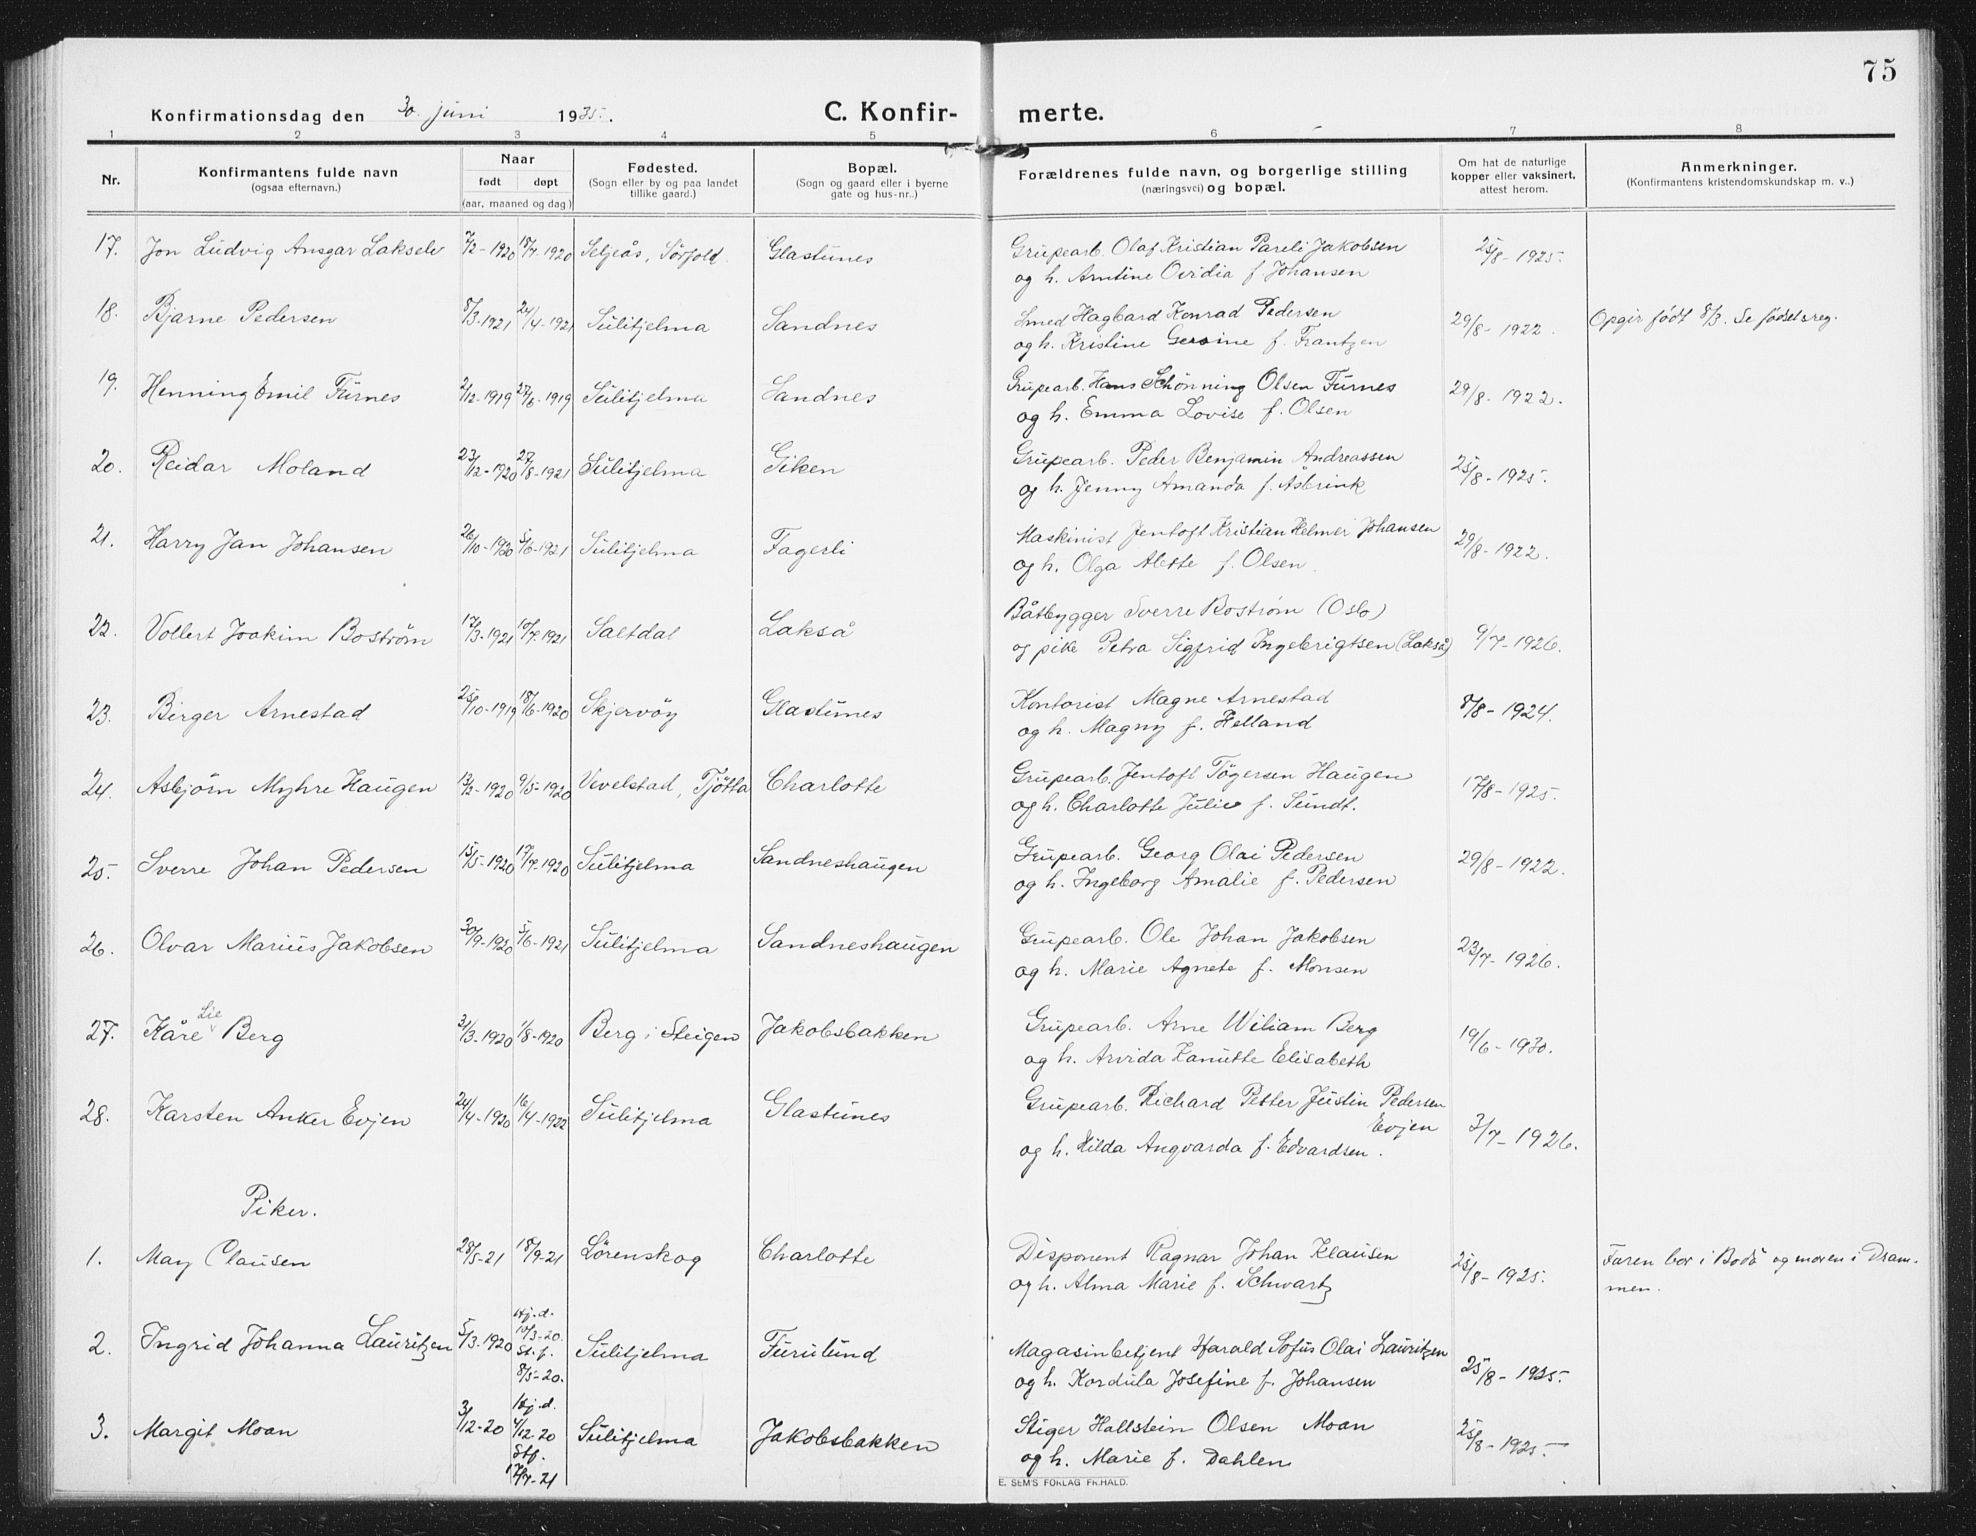 75
Konfirmationsdag den 30. juni 1935. C. Konfir- merte.
1 2 3 4 5 6 7 8
Nr. Konfirmantens fulde navn (ogsaa efternavn.) Naar født døpt (aar, maaned og dag.) Fødested. (Sogn eller by og paa landet tillike gaard.) Bopæl. (Sogn og gaard eller i byerne gate og hus-nr..) Forældrenes fulde navn, og borgerlige stilling (næringsvei) og bopæl. Om hat de naturlige kopper eller vaksinert, attest herom. Anmerkninger. (Konfirmantens kristendomskundskap m. v..)
17. Jon Ludvig Ansgar Lakselv 7/2-1920 18/7-1920 Seljeås, Sörfold. Glastunes Grupearb. Olaf Kristian Pareli Jakobsen 25/8-1925.
og h. Arntine Ovidia f. Johansen
18. Bjarne Pedersen 8/3-1921 24/4-1921 Sulitjelma Sandnes Smed Hagbard Konrad Pedersen 29/8-1922. Opgir født 8/3. Se fødselsreg.
og h. Kristine Gersine f. Frantzen
19. Henning Emil Furnes 2/12-1919 27/6-1919 Sulitjelma Sandnes Grupearb. Hans Schönning Olsen Furnes 29/8-1922.
og h. Emma Lovise f. Olsen
20. Reidar Moland 23/12-1920 27/8-1921 Sulitjelma Giken Grupearb. Peder Benjamin Andreassen 25/8-1925.
og h. Jenny Amanda f. Åsbrink
21. Harry Jan Johansen 26/10-1920 5/6-1921 Sulitjelma Fagerli Maskinist Jentoft Kristian Helmer Johansen 29/8-1922.
og h. Olga Alette f. Olsen.
22. Vollert Joakim Boström 17/3-1921 10/7-1921 Saltdal Lakså Båtbygger Sverre Boström (Oslo)
og pike Petra Sigfrid Ingebrigtsen (Lakså) 9/7-1926.
23. Birger Arnestad 25/10-1919 18/6-1920 Skjervöy Glastunes Kontorist Magne Arnestad 8/8-1924.
og h. Magny f. Helland
24. Asbjørn Myhre Haugen 13/2-1920 9/5-1920 Vevelstad, Tjötta Charlotte Grupearb. Jentoft Tögersen Haugen 17/8-1925.
og h. Charlotte Julie f. Sundt.
25. Sverre Johan Pedersen 15/5-1920 17/7-1920 Sulitjelma Sandneshaugen Grupearb. Georg Olai Pedersen 29/8-1922.
og h. Ingeborg Amalie f. Pedersen
26. Olvar Marius Jakobsen 30/9-1920 5/6-1921 Sulitjelma Sandneshaugen Grupearb. Ole Johan Jakobsen 23/7-1926.
og h. Marie Agnete f. Monsen
27. Kåre Lie Berg 31/3-1920 1/8-1920 Berg i Steigen Jakobsbakken Grupearb. Arne Wiliam Berg 19/6-1930.
og h. Arvida Zanutte Elisabeth
28. Karsten Anker Evjen 24/4-1920 16/4-1922 Sulitjelma Glastunes Grupearb. Richard Petter Justin Pedersen
Evjen 3/7-1926.
og h. Hilda Angvarda f. Edvardsen.
Piker.
1. May Clausen 28/5-21 18/9-21 Lörenskog Charlotte Disponent Ragnar Johan Klausen 25/8-1925. Faren bor i Bodö og moren i Dram-
og h. Alma Marie f. Schwartz men.
2. Ingrid Johanna Lauritzen 5/3-1920 Hj.d. 10/3-20. St. f. 8/5-20. Sulitjelma Furulund Magasinbetjent Harald Sofus Olai Lauritzen 25/8-1925.
og h. Kordula Josefine f. Johansen
3. Margit Moan 3/12-20 Hj.d. 4/12.20 Stf. 17/7-21 Sulitjelma Jakobsbakken Stiger Hallstein Olsen Moan 25/8-1925.
og h. Marie f. Dahlen
E. SEM'S FORLAG FR.HALD.